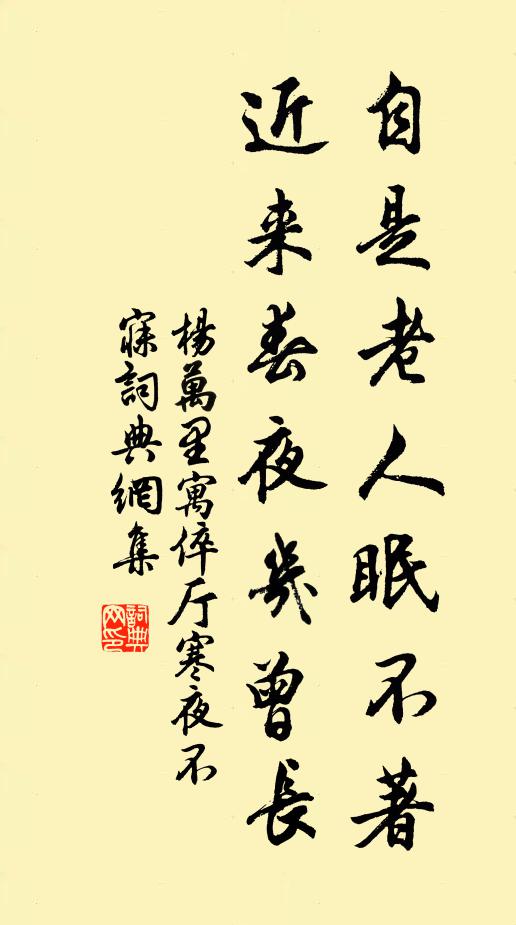 自是老人眠不著
近来春夜幾曾長
楊萬里寓倅厅寒夜不
寐詞典網集
詞典网印